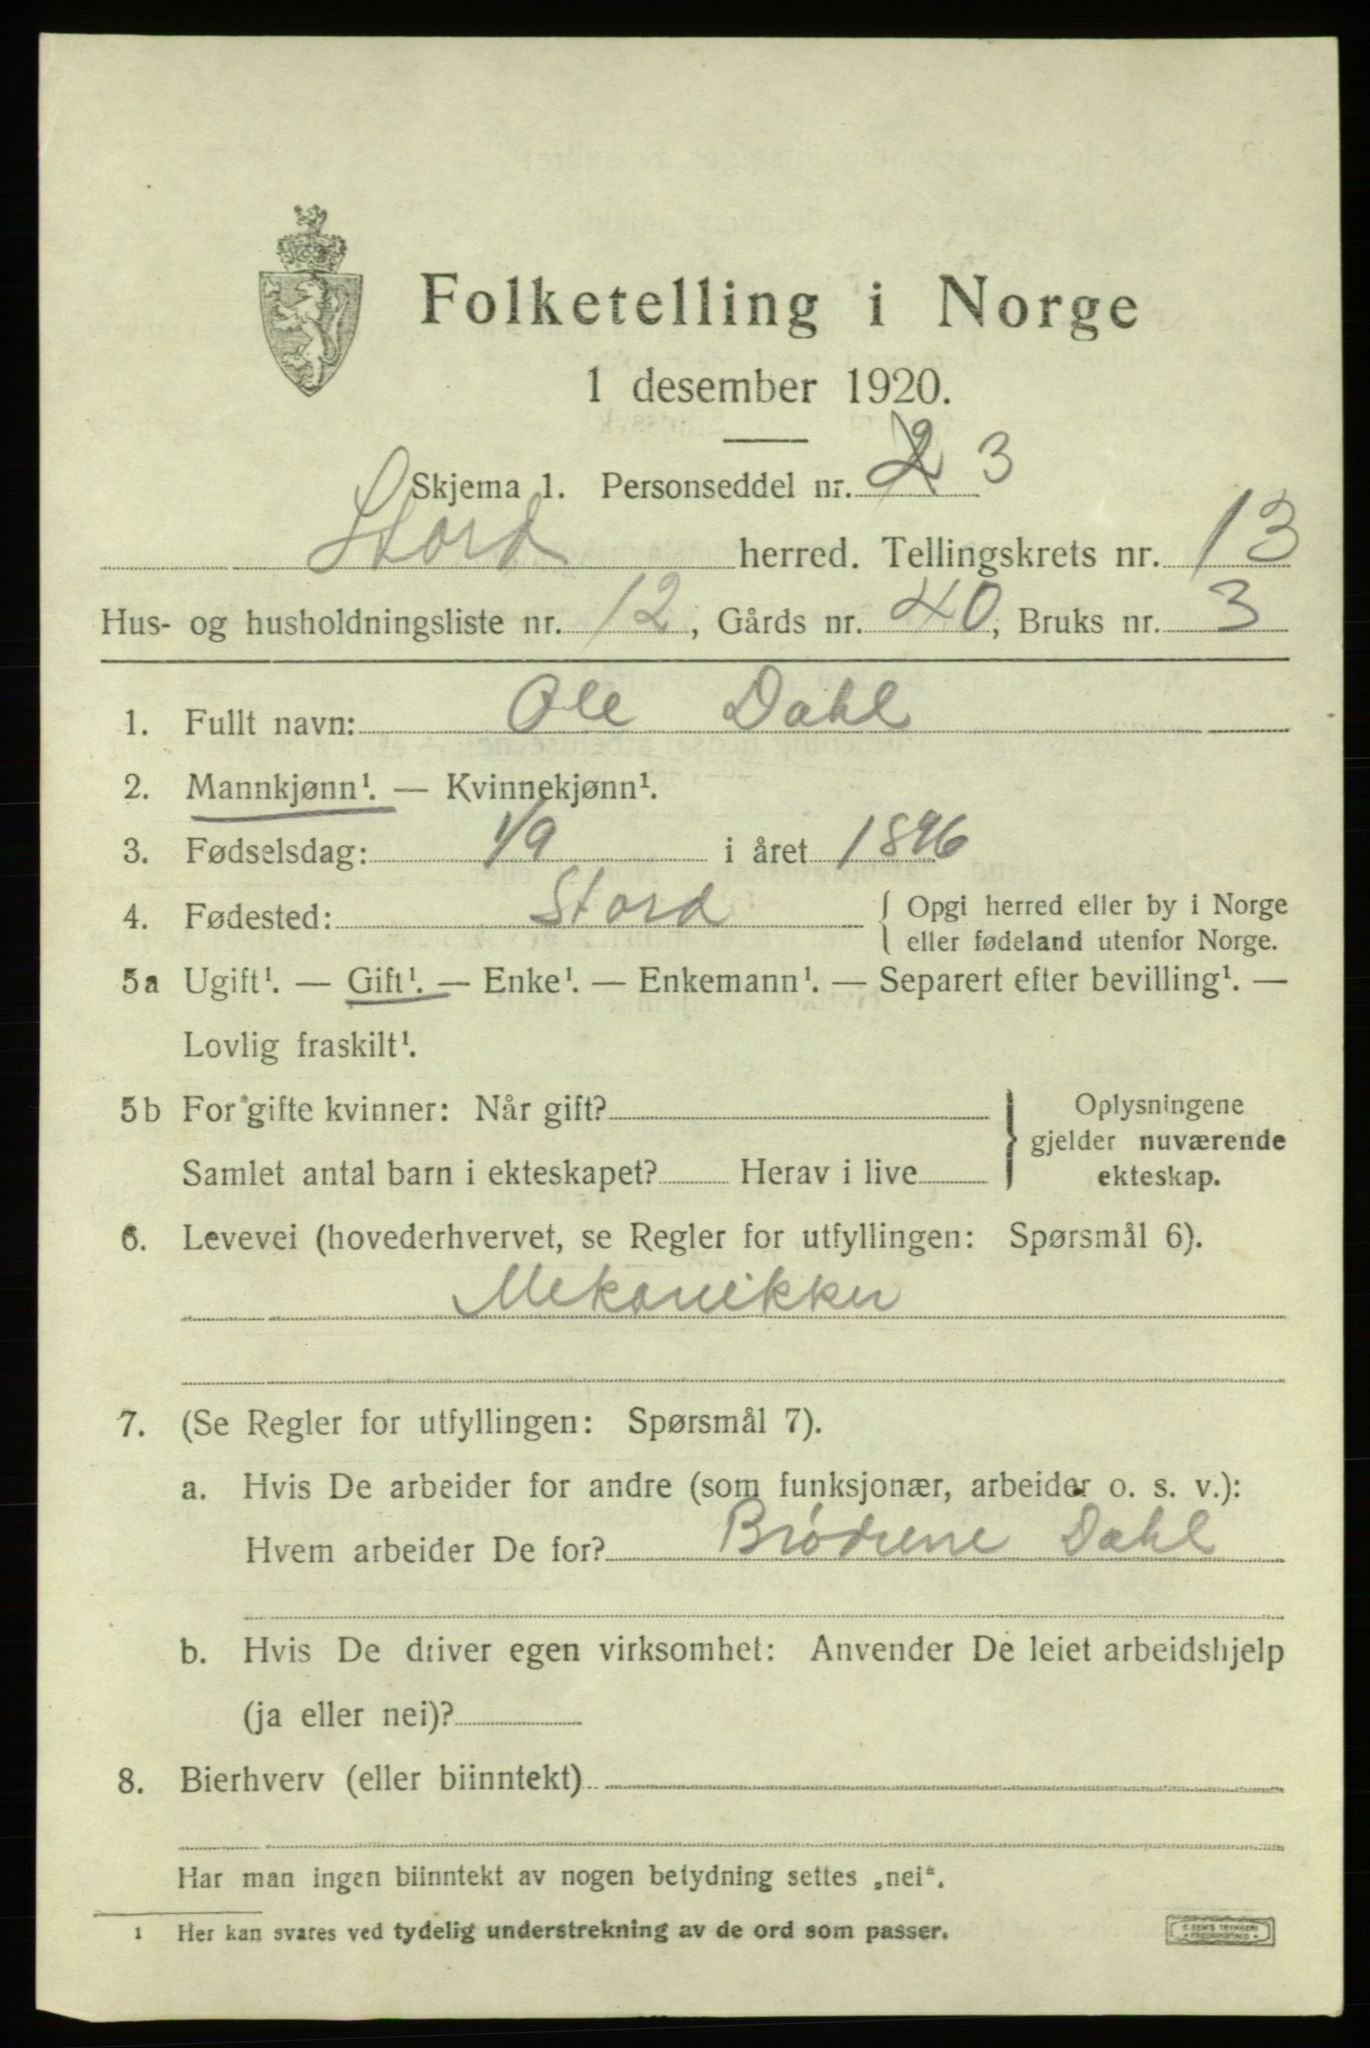 Folketelling i Norge
1 desember 1920.
Skjema 1. Personseddel nr. 2 3
Stord herred. Tellingskrets nr. 13
Hus- og husholdningsliste nr. 12, Gårds nr. 40, Bruks nr. 3
1. Fullt navn: Ole Dahl
2. Mannkjønn¹. — Kvinnekjønn¹.
3. Fødselsdag: 1/9 i året 1896
4. Fødested: Stord { Opgi herred eller by i Norge
eller fødeland utenfor Norge.
5a Ugift¹. — Gift¹. — Enke¹. — Enkemann¹. — Separert efter bevilling¹. —
Lovlig fraskilt¹.
5b For gifte kvinner: Når gift? } Oplysningene
gjelder nuværende
Samlet antal barn i ekteskapet? Herav i live ekteskap.
6. Levevei (hovederhvervet, se Regler for utfyllingen: Spørsmål 6).
Mekanikker
7. (Se Regler for utfyllingen: Spørsmål 7).
a. Hvis De arbeider for andre (som funksjonær, arbeider o. s. v.):
Hvem arbeider De for? Brødrene Dahl
b. Hvis De driver egen virksomhet: Anvender De leiet arbeidshjelp
(ja eller nei)?
8. Bierhverv (eller biinntekt)
Har man ingen biinntekt av nogen betydning settes „nei“.
1 Her kan svares ved tydelig understrekning av de ord som passer.